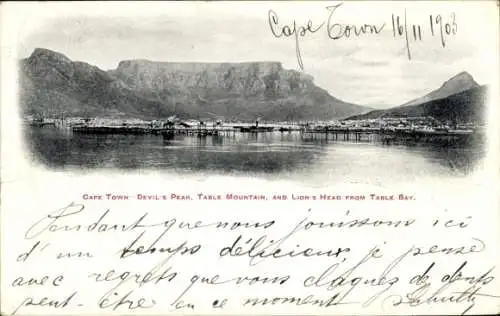 Cape Town 16/11 1903
CAPE TOWN DEVIL'S PEAK, TABLE MOUNTAIN, AND LION'S HEAD FROM TABLE BAY.
Pendant que nous jouissons ici
d'un temps délicieux, je pense
avec regrets que vous claquez de dents
peut-être en ce moment